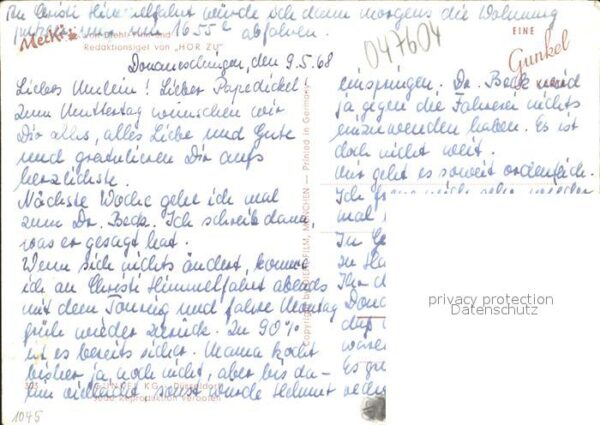 An Christi Himmelfahrt würde ich dann morgens die Wohnung
putzen und um 16 55 h abfahren.
Mecki
Redaktionsigel von „HÖR ZU"
EINE
Gunkel
047604
Donaueschingen, den 9.5.68
Liebes Mutlein! Lieber Papedickel!
Zum Muttertag wünschen wir
Dir alles, alles Liebe und Gute
und gratulieren Dir aufs
herzlichste.
Nächste Woche gehe ich mal
zum Dr. Beck. Ich schreib dann,
was er gesagt hat.
Wenn sich nichts ändert, komme
ich an Christi Himmelfahrt abends
mit dem Touring und fahre Montag
früh wieder zurück. Zu 90%
ist es bereits sicher. Mama kocht
bisher ja noch nicht, aber bis da-
hin vielleicht sonst würde Helmut
einspringen. Dr. Beck wird
ja gegen die Fahrerei nichts
einzuwenden haben. Es ist
doch nicht weit.
Mir geht es soweit ordentlich.
Ich
mal
In
In
Ihr
Printed in Germany
MÜNCHEN
privacy protection
Datenschutz
KG
Düsseldorf
Reproduktion verboten
1045